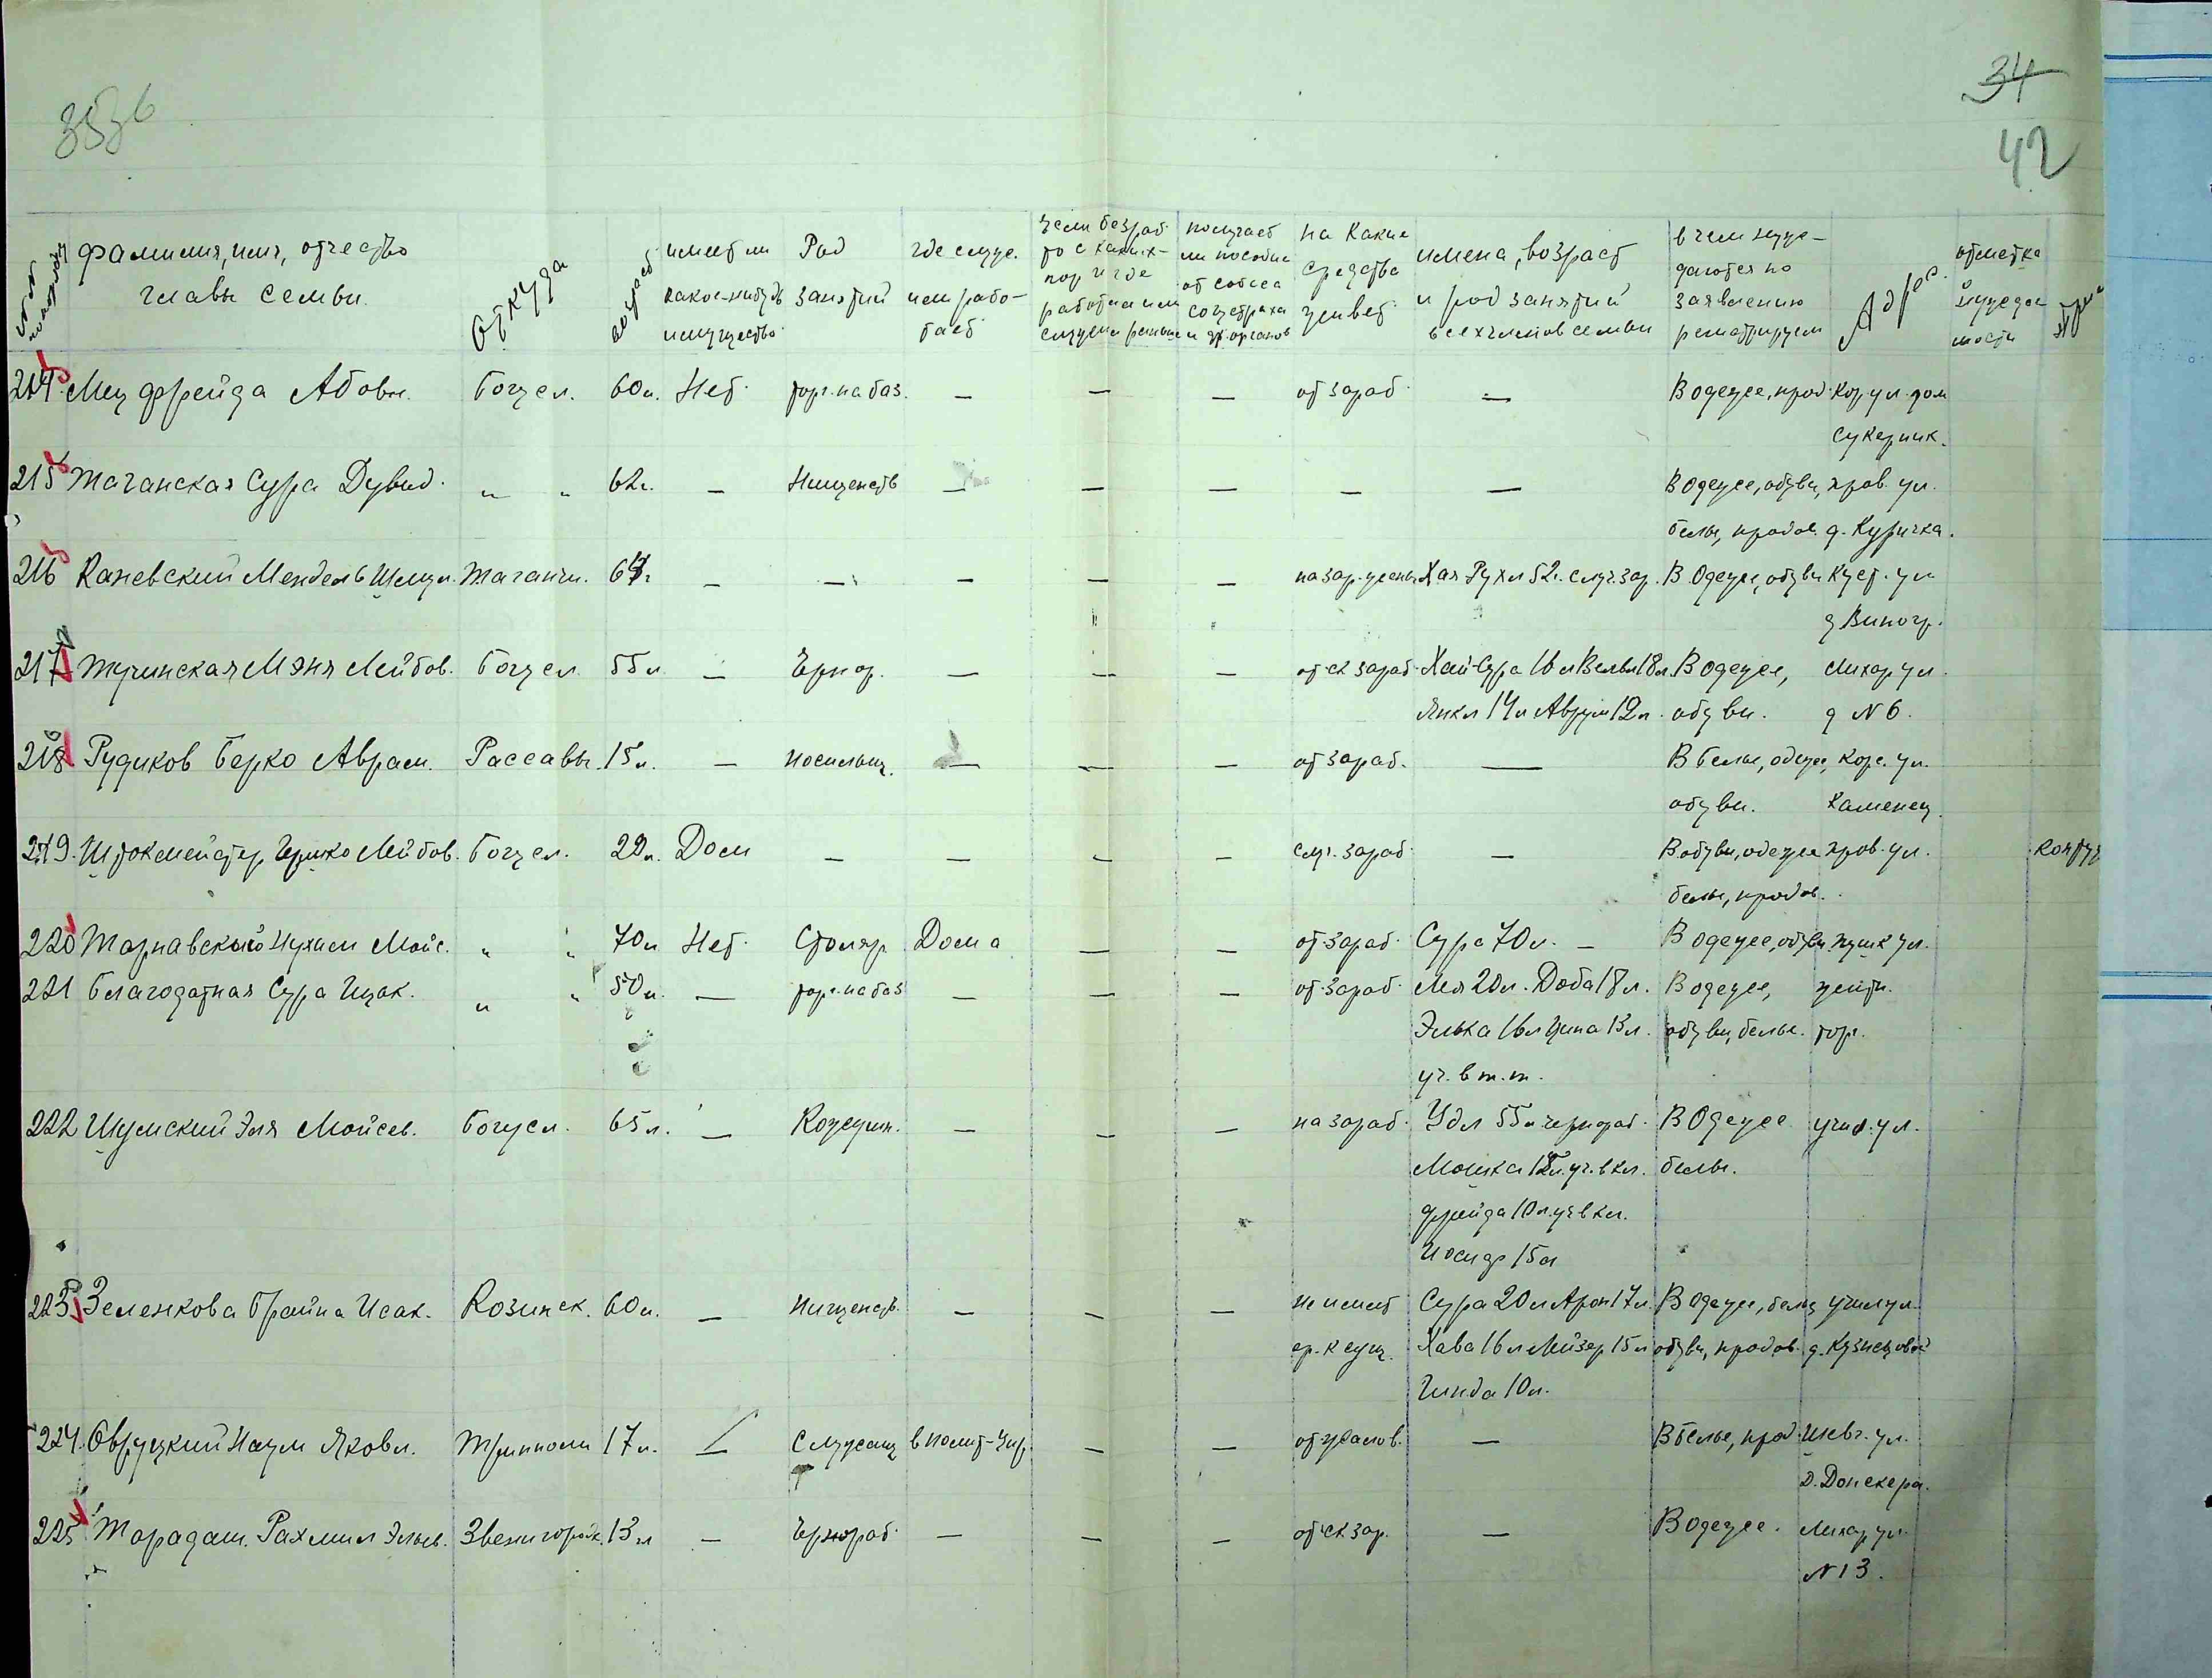 34
42
353б
№№ по порядку | фамилия, имя, отчество главы семьи | Откуда | возраст | имеет ли какое-нибудь имущество | Род занятий | где служ. или рабо-тает | Если безраб. то с каких-пор и где работал или служил раньше | получает ли пособие от собеса соцстраха и др. органов | на какие средства живет | имена, возраст и род занятий всех членов семьи | в чем нуж-дается по заявлению регистрируем | Адрес | отметка нуждаем ности
214. Мец Фрейда Абовн. Богусл. 60 л. Нет. торг. на баз. — — — от зараб. — В одежде, прод. Кор. ул. дом
Сукерник.
215 Таганская Сура Дувид. „ „ 62 г. — Нищенств — — — — — В одежде, обуви, пров. ул.
белье, продов. д. Куричка.
216 Каневский Мендель Шмул. Таганчи. — — — — — на зар. жены Хая Рухл 52 г. случ. зар. В Одежде, обуви Куст. ул
д Виногр.
217 Тучинская Мэня Лейбов. Богусл. 55 л — Чернор. — — — от сл зараб. Хай-Сура 16 л Вельвл 18 л. В одежде, Лихар ул.
Янкл 14 л Аврум 12 л. обуви. д № 6.
218 Рудиков Берко Аврам. Рассавы. 15 л. — носильщ. — — — от зараб. — В белье, одежде, Корс. ул.
обуви. Каменец.
219. Штокмейстер Гершко Лейбов. Богусл. 22 л. Дом — — — — случ. зараб. — В обуви, одежде пров. ул. контуз
белье, продов.
220 Тарнавский Нухим Мойс. „ „ 70 л Нет. Столяр Дома — — от зараб. Сура 70 л. — В одежде, обуви пушк ул.
221 Благодатная Сура Ицак. „ „ 50 л. — торг. на баз — — — от зараб. Мея 20 л. Доба 18 л. В одежде, центр.
Элька 16 л Ципа 13 л. обуви, белье. торг.
уч. в т. т.
222 Шумский Эля Мойсев. Богусл. 65 л. — Кожушн. — — — на зараб. Удл 55 л чернораб. В Одежде учил. ул.
Мошка уч. в кл. белье.
Фрейда 10 л. уч в кл.
Иосиф 15 л
223. Зеленкова Брайна Исак. Козинск. 60 л. — нищенств. — — — не имеет Сура 20 л Арон 17 л. В Одежде, белье учил ул.
ср. к сущ. Хава 16 л Лейзер 15 л обуви, продов. д. Кузнецовой
Гинда 10 л.
224. Овруцкий Наум Яковл. Триполи 17 л. — Служащ в полит-Упр. — — от жалов. — В белье, прод. Шевч. ул.
д. Донскера.
225 Тарадаш. Рахмил Эльев. Звенигородк. 13 л — Чернораб. — — — от сл зар. — В одежде. Лихар ул.
№ 13.